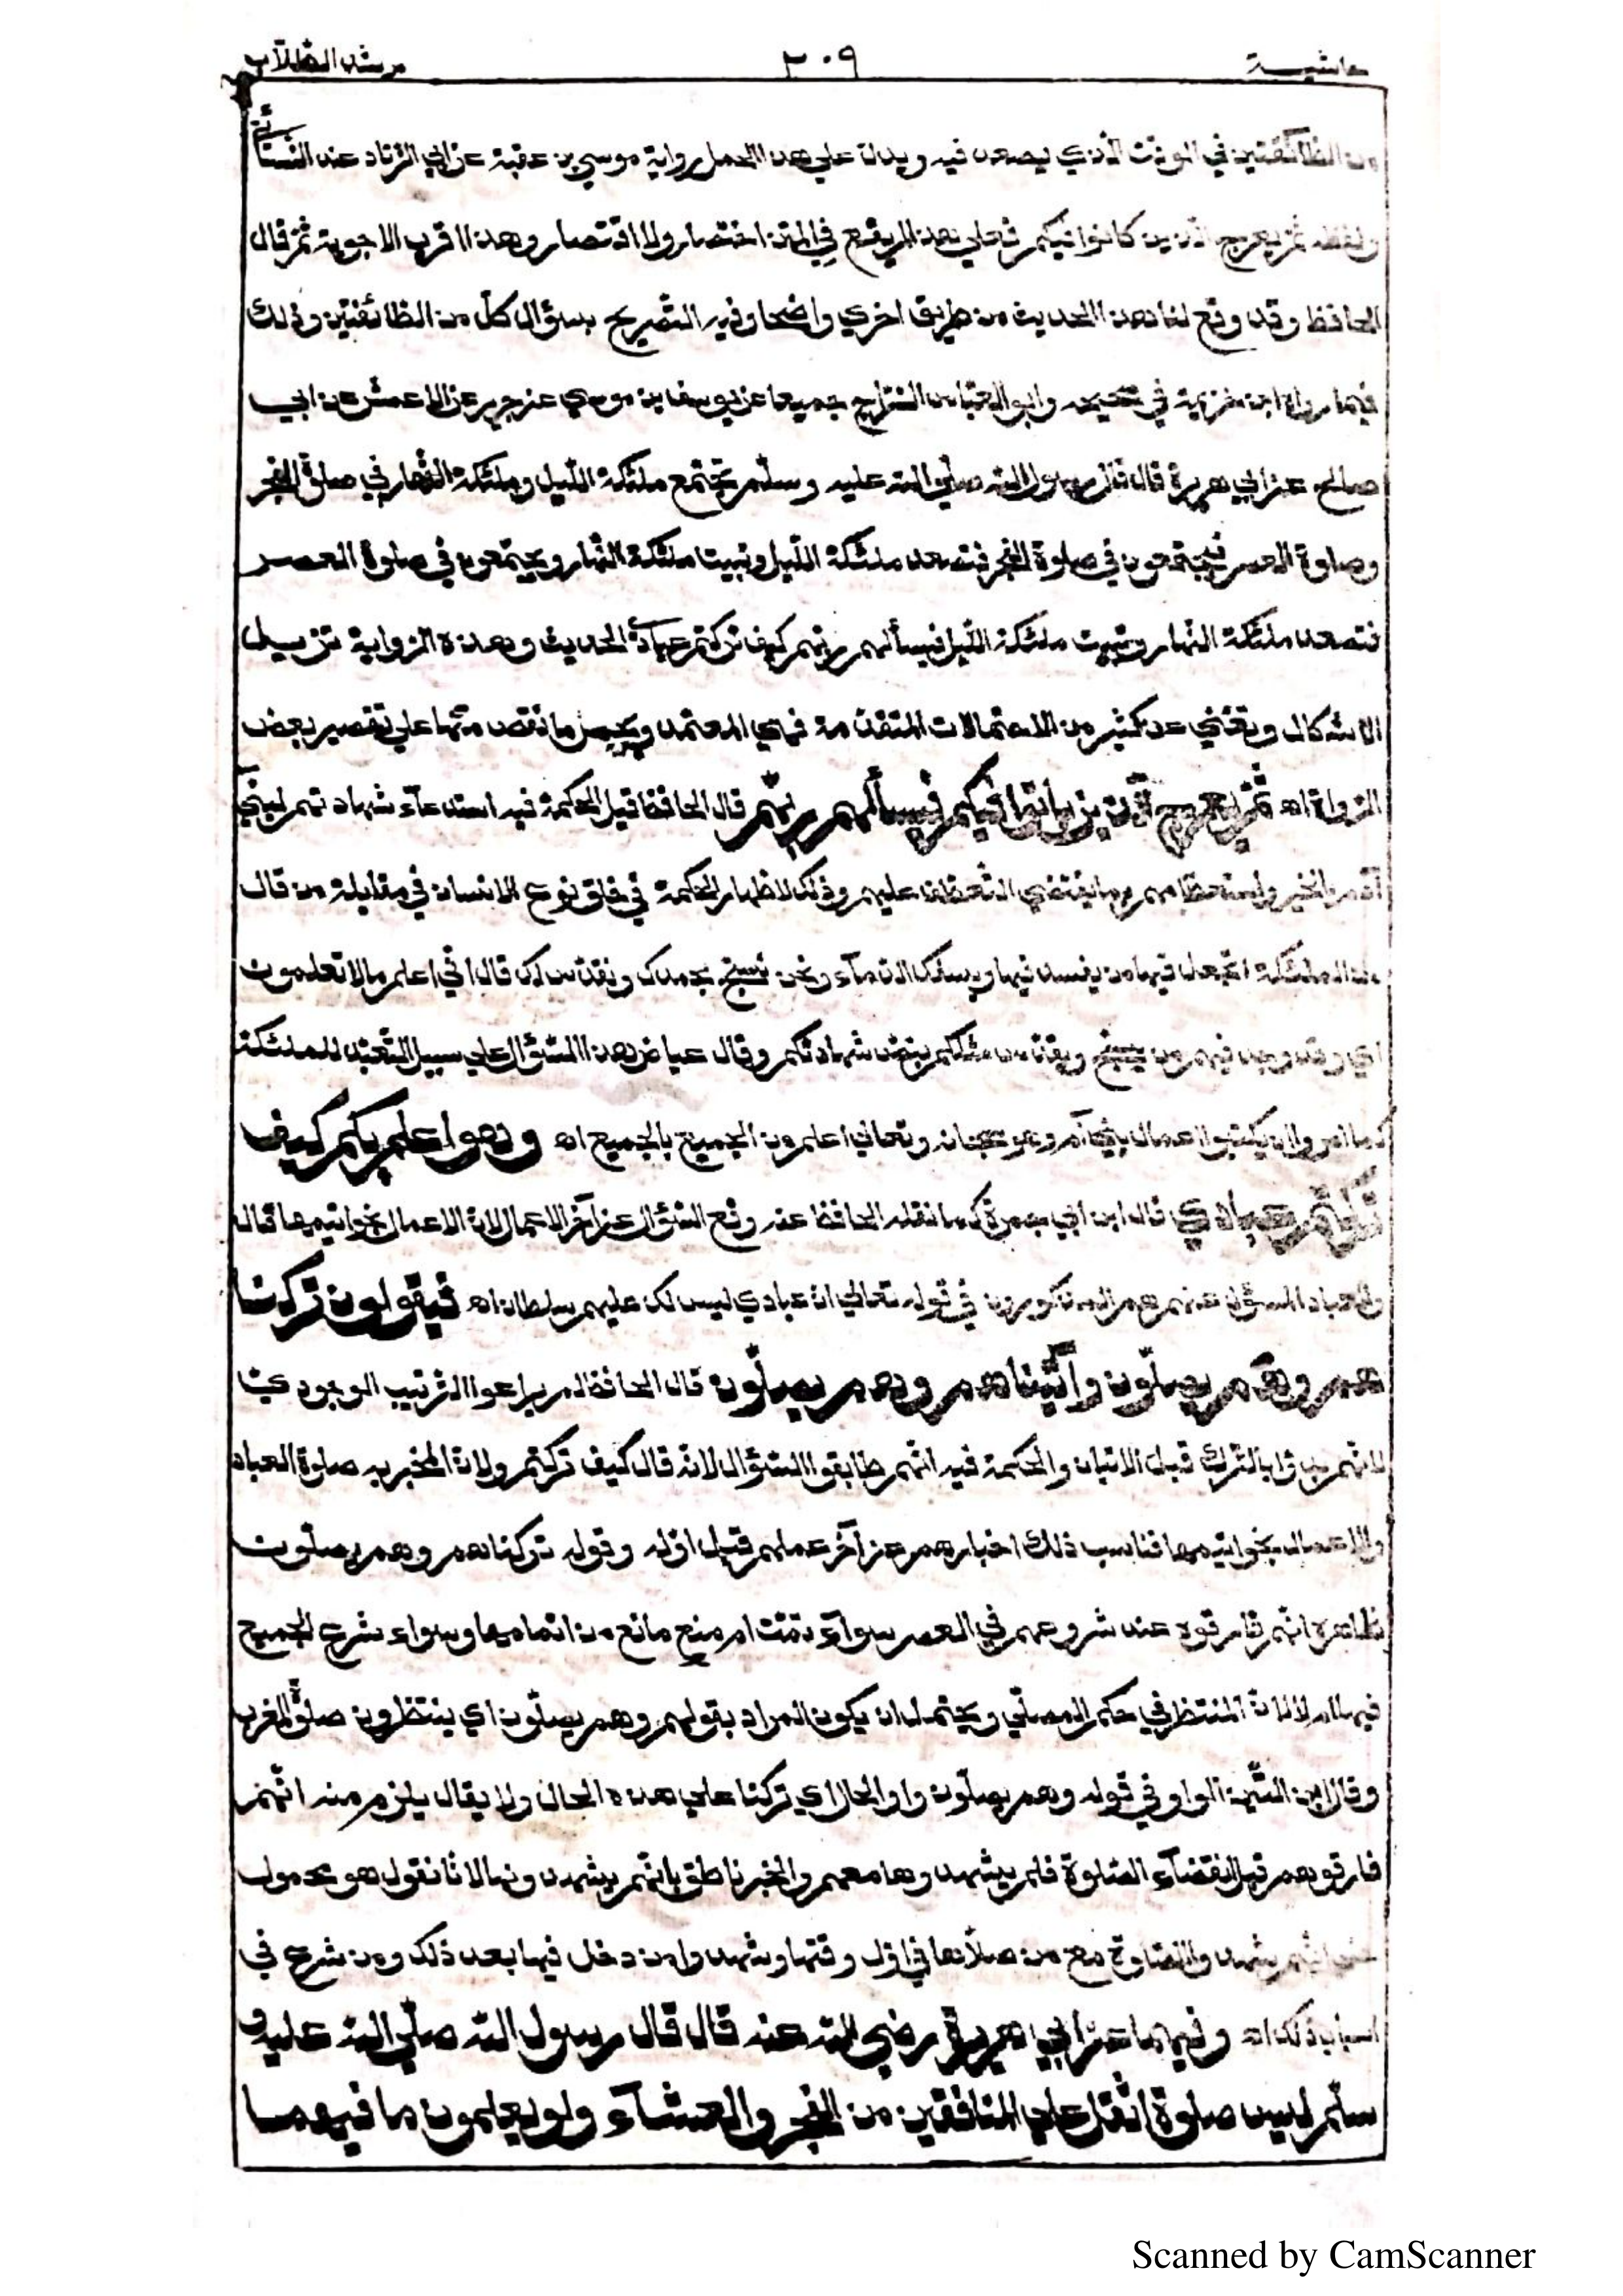 حاشية ٢٠٩ مرشد الطلاب
من الطائفتين في الوقت الذي يصعد فيه ويدل علي هذا الحمل رواية موسي بن عقبة عن ابي الزناد عند النسائي
ولفظه ثم يعرج الذين كانوا فيكم فعلي هذا لم يقع في المتن اختصار ولا اقتصار وهذا اقرب الاجوبة ثم قال
الحافظ وقد وقع لنا هذا الحديث من طريق اخري واضحا وفيه التصريح بسؤال كل من الطائفتين وذلك
فيما رواه ابن خزيمة في صحيحه وابو العباس السراج جميعا عن يوسف بن موسي عن جرير عن الاعمش عن ابي
صالح عن ابي هريرة قال قال رسول الله صلي الله عليه وسلم تجتمع ملئكة الليل وملئكة النهار في صلوة الفجر
وصلوة العصر فيجتمعون في صلوة الفجر فتصعد ملئكة الليل وتبيت ملئكة النهار ويجتمعون في صلوة العصر
فتصعد ملئكة النهار وتبيت ملئكة الليل فيسألهم ربهم كيف تركتم عبادي الحديث وهذه الرواية تزيل
الاشكال وتغني عن كثير من الاحتمالات المتقدمة فهي المعتمد ويحمل ما نقص منها علي تقصير بعض
الرواة اه ثم يعرج الذين باتوا فيكم فيسألهم ربهم قال الحافظ قيل الحكمة فيه استدعآء شهادتهم لبني
آدم بالخير واستعطافهم بما يقتضي التعطف عليهم وذلك لاظهار الحكمة في خلق نوع الانسان في مقابلة من قال
من الملئكة اتجعل فيها من يفسد فيها ويسفك الدمآء ونحن نسبح بحمدك ونقدس لك قال اني اعلم ما لا تعلمون
اي وقد وجد فيهم من يسبح ويقدس مثلكم بنص شهادتكم وقال عياض هذا السؤال علي سبيل التعبد للملئكة
كما امروا ان يكتبوا اعمال بني آدم وهو سبحانه وتعالي اعلم من الجميع بالجميع اه وهو اعلم بكم كيف
تركتم عبادي قال ابن ابي جمرة كما نقله الحافظ عنه وقع السؤال عن آخر الاعمال لان الاعمال بخواتيمها قال
والعباد المسؤل عنهم هم المذكورون في قوله تعالي ان عبادي ليس لك عليهم سلطان اه فيقولون تركنا
هم وهم يصلون وأتيناهم وهم يصلون قال الحافظ لم يراعوا الترتيب الوجودي
لانهم بدؤا بالترك قبل الاتيان والحكمة فيه انهم طابقوا السؤال لانه قال كيف تركتم ولان المخبر به صلوة العباد
والاعمال بخواتيمها فناسب ذلك اخبارهم عن آخر عملهم قبل اوله وقوله تركناهم وهم يصلون
ظاهره انهم فارقوهم عند شروعهم في العصر سوآء تمت ام منع مانع من اتمامها وسواء شرع الجميع
فيها ام لا لان المنتظر في حكم المصلي ويحتمل ان يكون المراد بقولهم وهم يصلون اي ينتظرون صلوة المغرب
وقال ابن التين الواو في قوله وهم يصلون واو الحال اي تركنا علي هذه الحال ولا يقال يلزم منه انهم
فارقوهم قبل انقضآء الصلوة فلم يشهدوها معهم والخبر ناطق بانهم يشهدونها لانا نقول هو محمول
علي انهم شهدوا الصلوة مع من صلاها في اول وقتها وشهدوا من دخل فيها بعد ذلك ومن شرع في
اسباب ذلك اه وفيهما عن ابي هريرة رضي الله عنه قال قال رسول الله صلي الله عليه و
سلم ليس صلوة اثقل علي المنافقين من الفجر والعشآء ولو يعلمون ما فيهما
Scanned by CamScanner